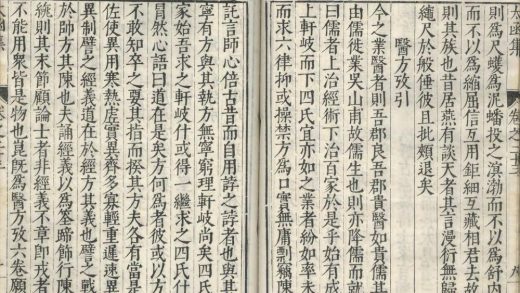 則爲尺蠖爲泥蟠投之溟渤而不以爲舒内
而不以爲縮屈信互用鉅細互藏相君去故
則其族也昔居燕有談天者其言漫衍無歸
繩尺於般倕彼且批頰退矣
醫方攷引
今之業醫者則吾郡良吾郡貴醫如貴儒其
由儒徙業吳山甫故儒生也則亦降儒而就
曰儒者上治經術下治百家於是乎始有成
上軒岐而下四氏宜亦如之業者紛如率未
而求六律抑或操禁方爲口實無庸剽竊陳
託言師心倍古昔而自用誖之誖者也與其
寧有方與其執方無寧窮理軒岐尚矣四氏
家始吾求之軒岐什或得一繼求之四氏什
冐然心語曰道在是矣方何爲者彼或以方
不敢知卒之要其指而揆其方夫各有當是
佐使異用寒熱虛實異齊多寡輕重遲速異
異制譬之經義道在於經方其義也譬之戰
於師方其陳也夫誦經義以爲筌蹄飾行陳
統則其末節顧論士者非經義不章即戎者
不能用衆皆是物也崑旣爲醫方攷六卷願